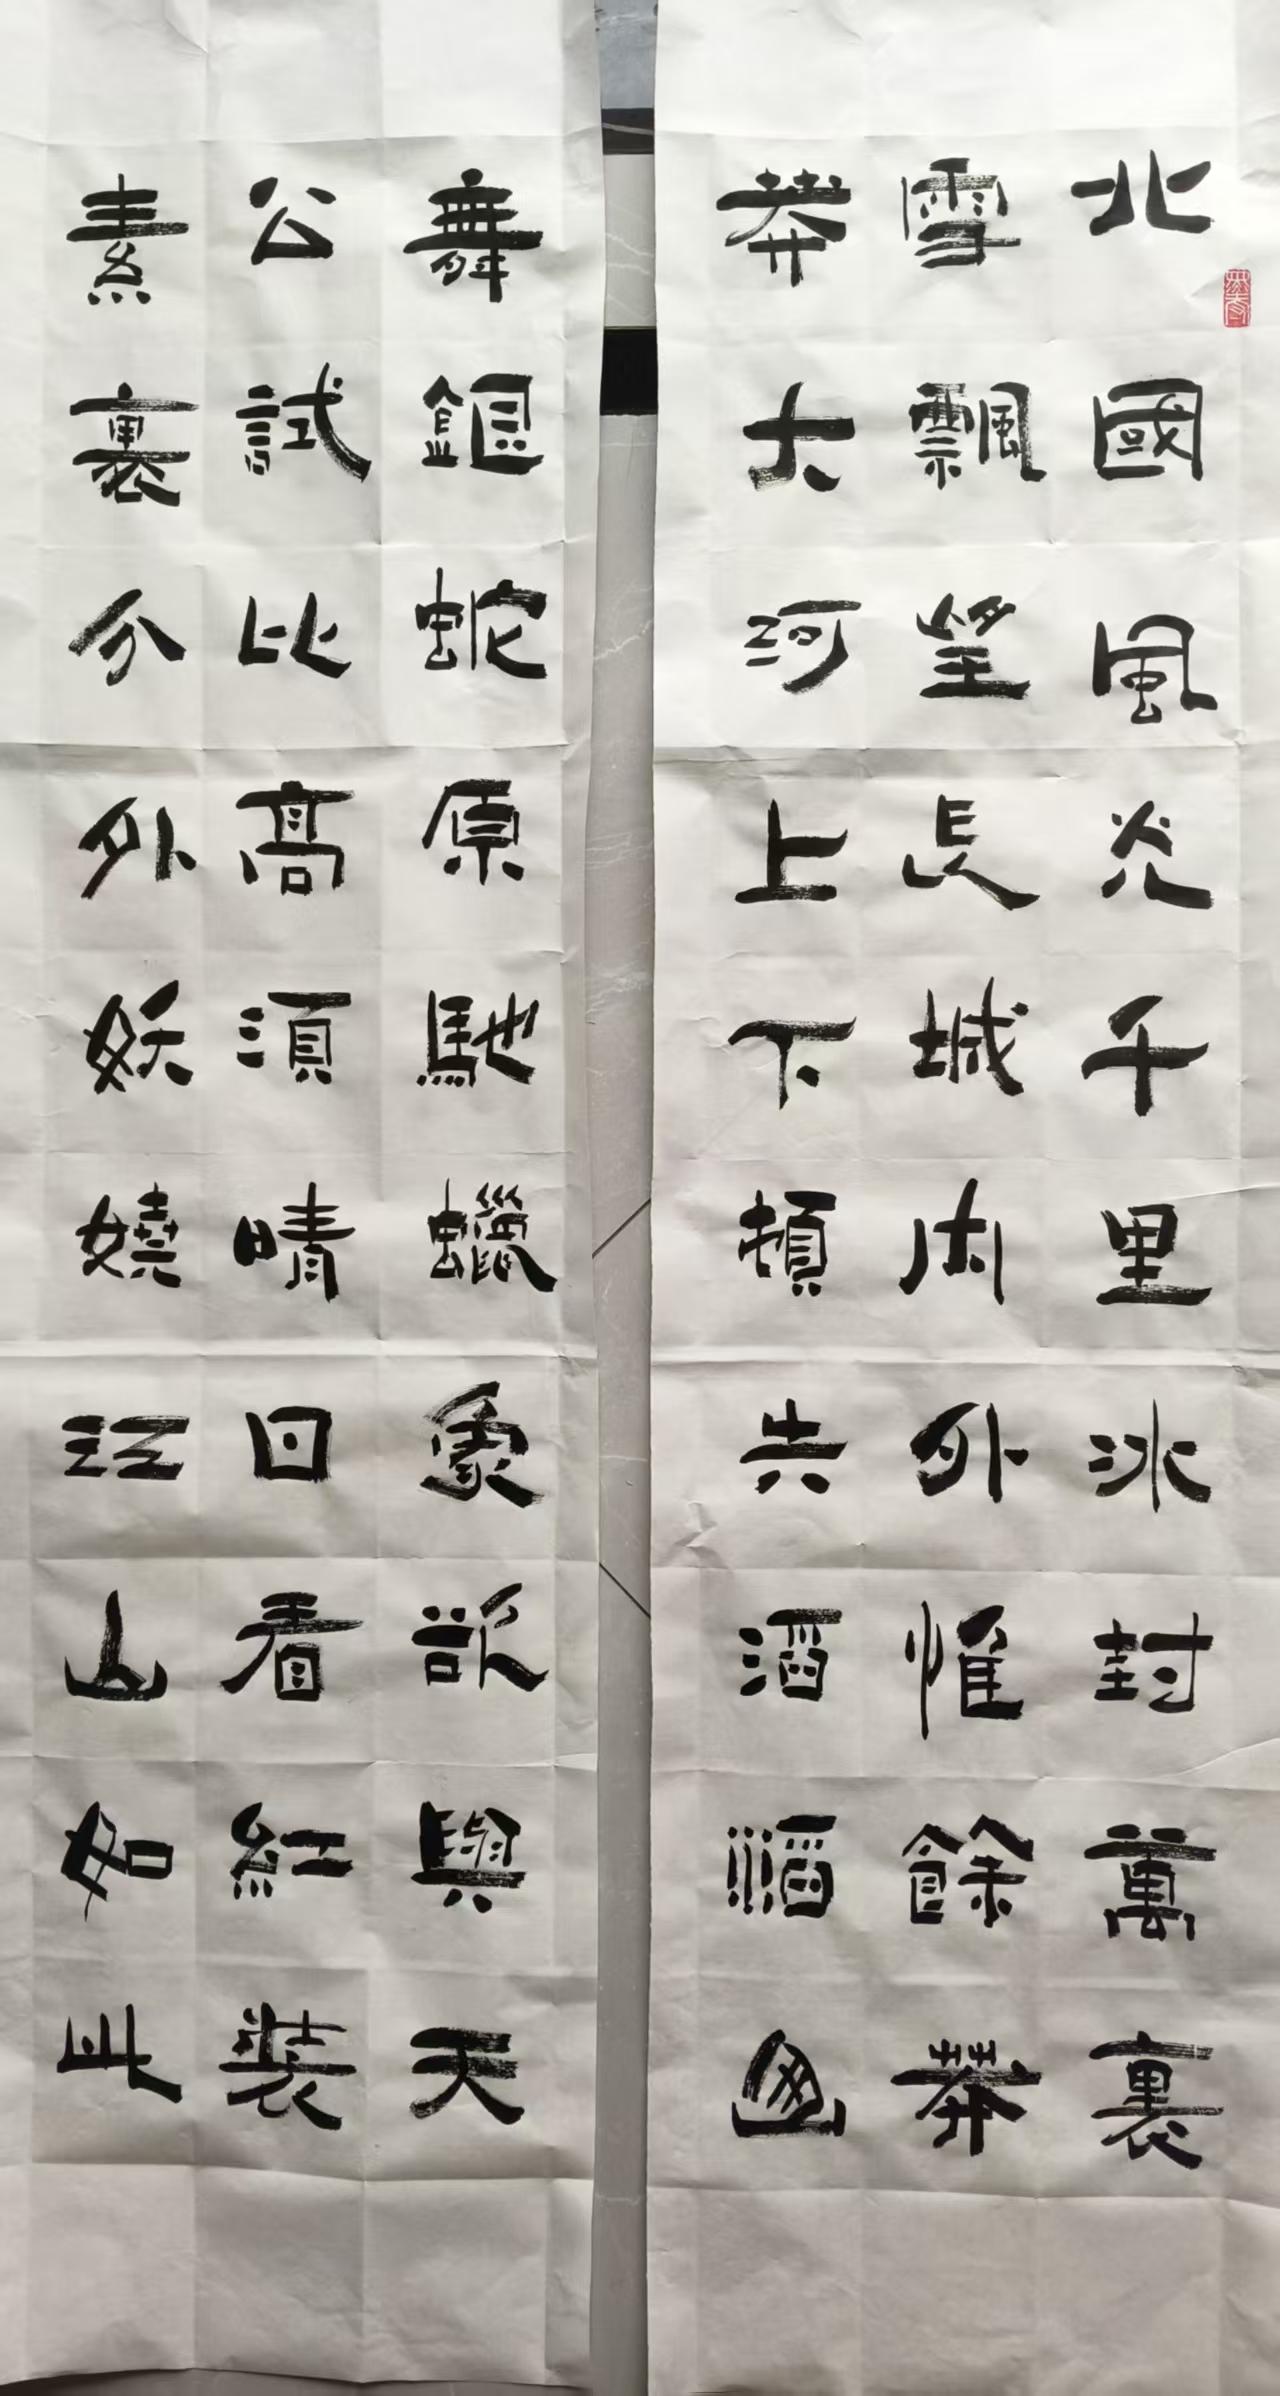 北國風光千里冰封萬裏
雪飄望長城內外惟餘莽
莽大河上下頓失滔滔
舞銀蛇原馳蠟象欲與天
公試比高須晴日看紅裝
素裹分外妖嬈江山如此